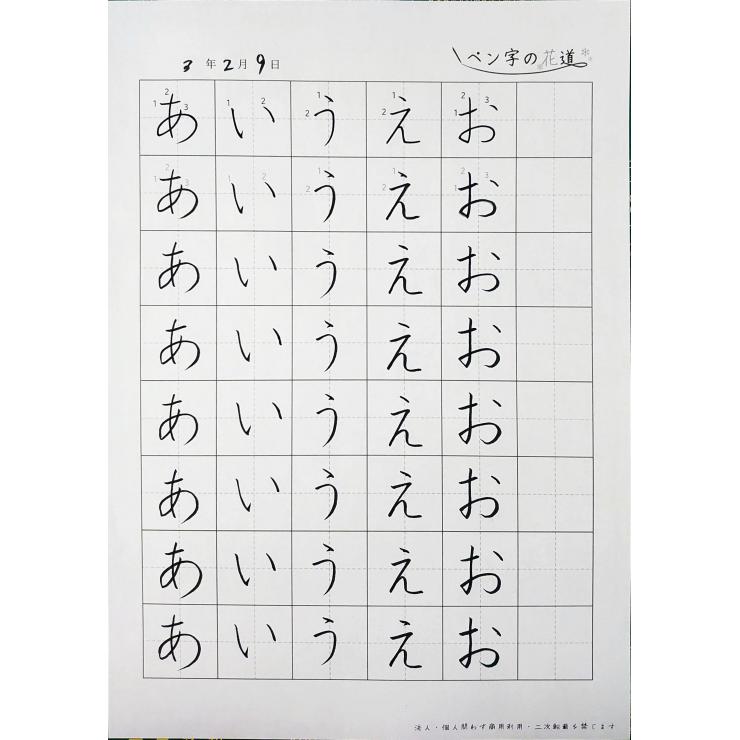 3年2月9日
ペン字の花道
あいうえお
あいうえお
あいうえお
あいうえお
あいうえお
あいうえお
あいうえお
あいうえお
法人・個人問わず商用利用・二次転載を禁じます